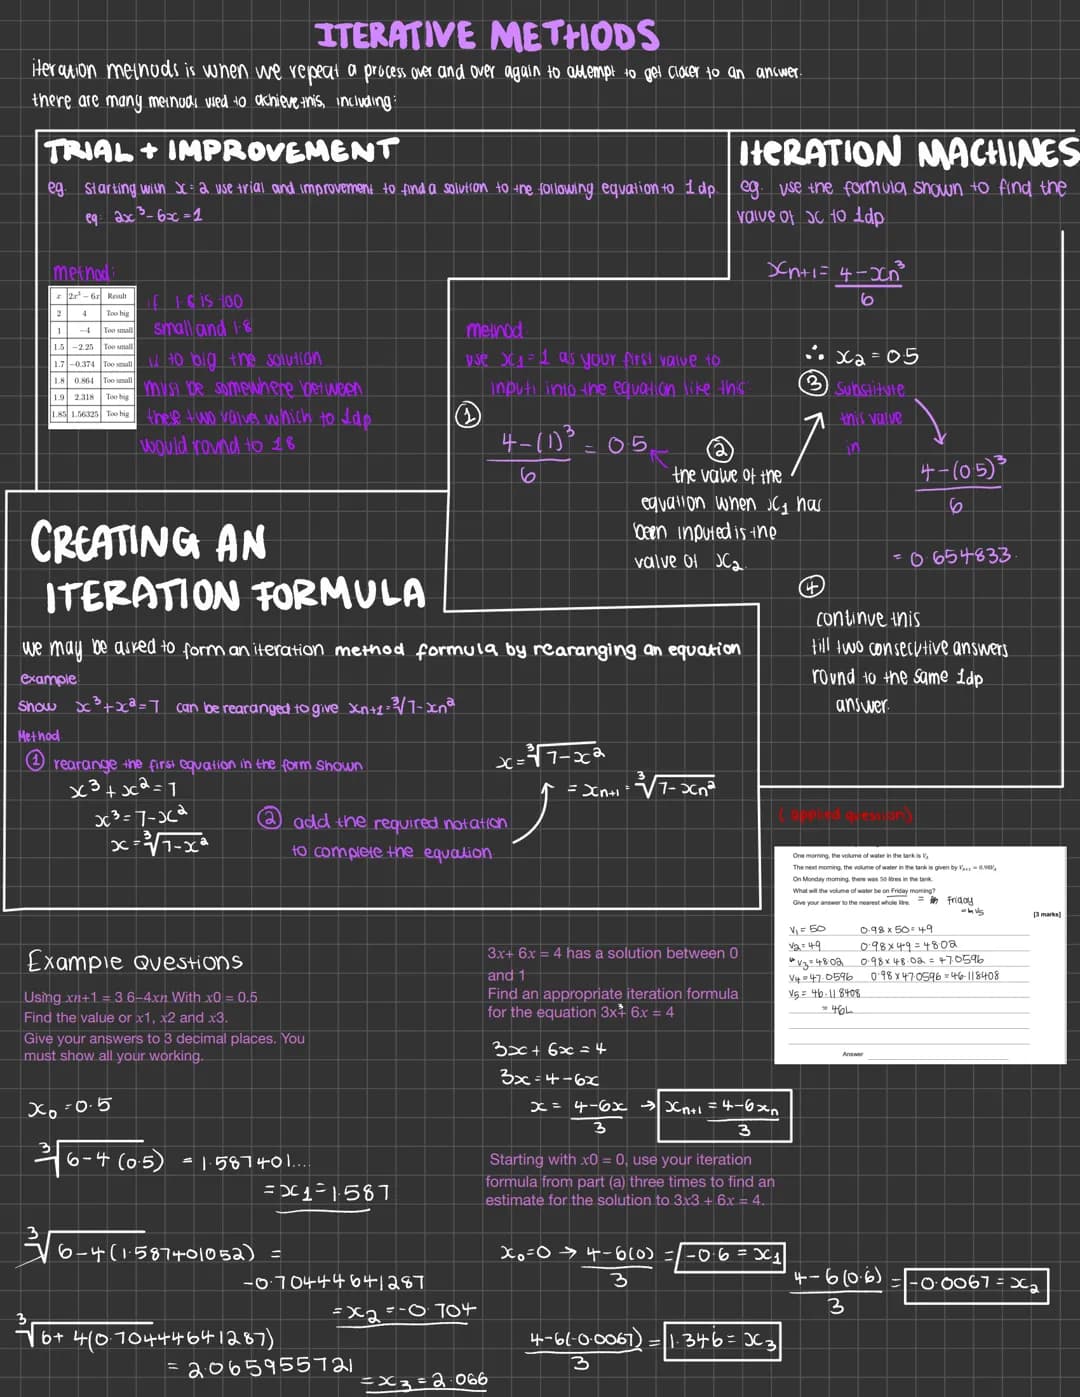 ITERATIVE METHODS
iteration methods is when we repeat a process over and over again to attempt to get closer to an answer.
there are many methods used to achieve this, including:
TRIAL + IMPROVEMENT
eg. starting with x=2 use trial and improvement to find a solution to the following equation to 1dp.
eq: 2x³-6x=1
method:
x 2x³ − 6x Result
2 4 Too big
1 −4 Too small
1.5 −2.25 Too small
1.7 −0.374 Too small
1.8 0.864 Too small
1.9 2.318 Too big
1.85 1.56325 Too big
if 1.6 is too
small and 1.8
is to big the solution
must be somewhere between
these two values which to 1dp
would round to 1.8
ITERATION MACHINES
eg. use the formula shown to find the
value of x to 1dp
xn+1 = 4-xn³
6
method
use x1=1 as your first value to
input into the equation like this:
①
4-(1)³ = 0.5
6
②
the value of the
equation when x1 has
been inputed is the
value of x2.
∴ x2 = 0.5
③ substitute
this value
in
4-(0.5)³
6
= 0.654833.
④
continue this
till two consecutive answers
round to the same 1dp
answer.
CREATING AN
ITERATION FORMULA
we may be asked to form an iteration method formula by rearanging an equation
example
show x³+x²=7 can be rearanged to give xn+1=∛7-xn²
Method
① rearange the first equation in the form shown
x³+x²=7
x³=7-x²
x=∛7-x²
② add the required notation
to complete the equation
x=∛7-x²
= xn+1 = ∛7-xn²
( applied question)
One morning, the volume of water in the tank is Vₙ
The next morning, the volume of water in the tank is given by Vₙ₊₁ = 0.98Vₙ
On Monday morning, there was 50 litres in the tank.
What will the volume of water be on Friday morning?
Give your answer to the nearest whole litre.
Friday
[3 marks]
V1 = 50 0.98 x 50 = 49
V2 = 49 0.98 x 49 = 48.02
V3 = 48.02 0.98 x 48.02 = 47.0596
V4 = 47.0596 0.98 x 47.0596 = 46.118408
V5 = 46.118408
= 46L
Answer
Example Questions
Using xn+1 = 3 6–4xn With x0 = 0.5
Find the value or x1, x2 and x3.
Give your answers to 3 decimal places. You
must show all your working.
x0 = 0.5
∛6-4(0.5) = 1.587401....
= x1 = 1.587
∛6-4(1.587401052) =
-0.70444641287
= x2 = -0.704
∛6+4(0.70444641287)
= 2.065955721
= x3 = 2.066
3x+ 6x = 4 has a solution between 0
and 1
Find an appropriate iteration formula
for the equation 3x³+ 6x = 4
3x + 6x = 4
3x = 4-6x
x = 4-6x → xn+1 = 4-6xn
3 3
Starting with x0 = 0, use your iteration
formula from part (a) three times to find an
estimate for the solution to 3x3 + 6x = 4.
x0=0 → 4-6(0) = -0.6 = x1
3
4-6(0.6) = -0.0067 = x2
3
4-6(-0.0067) = 1.346 = x3
3